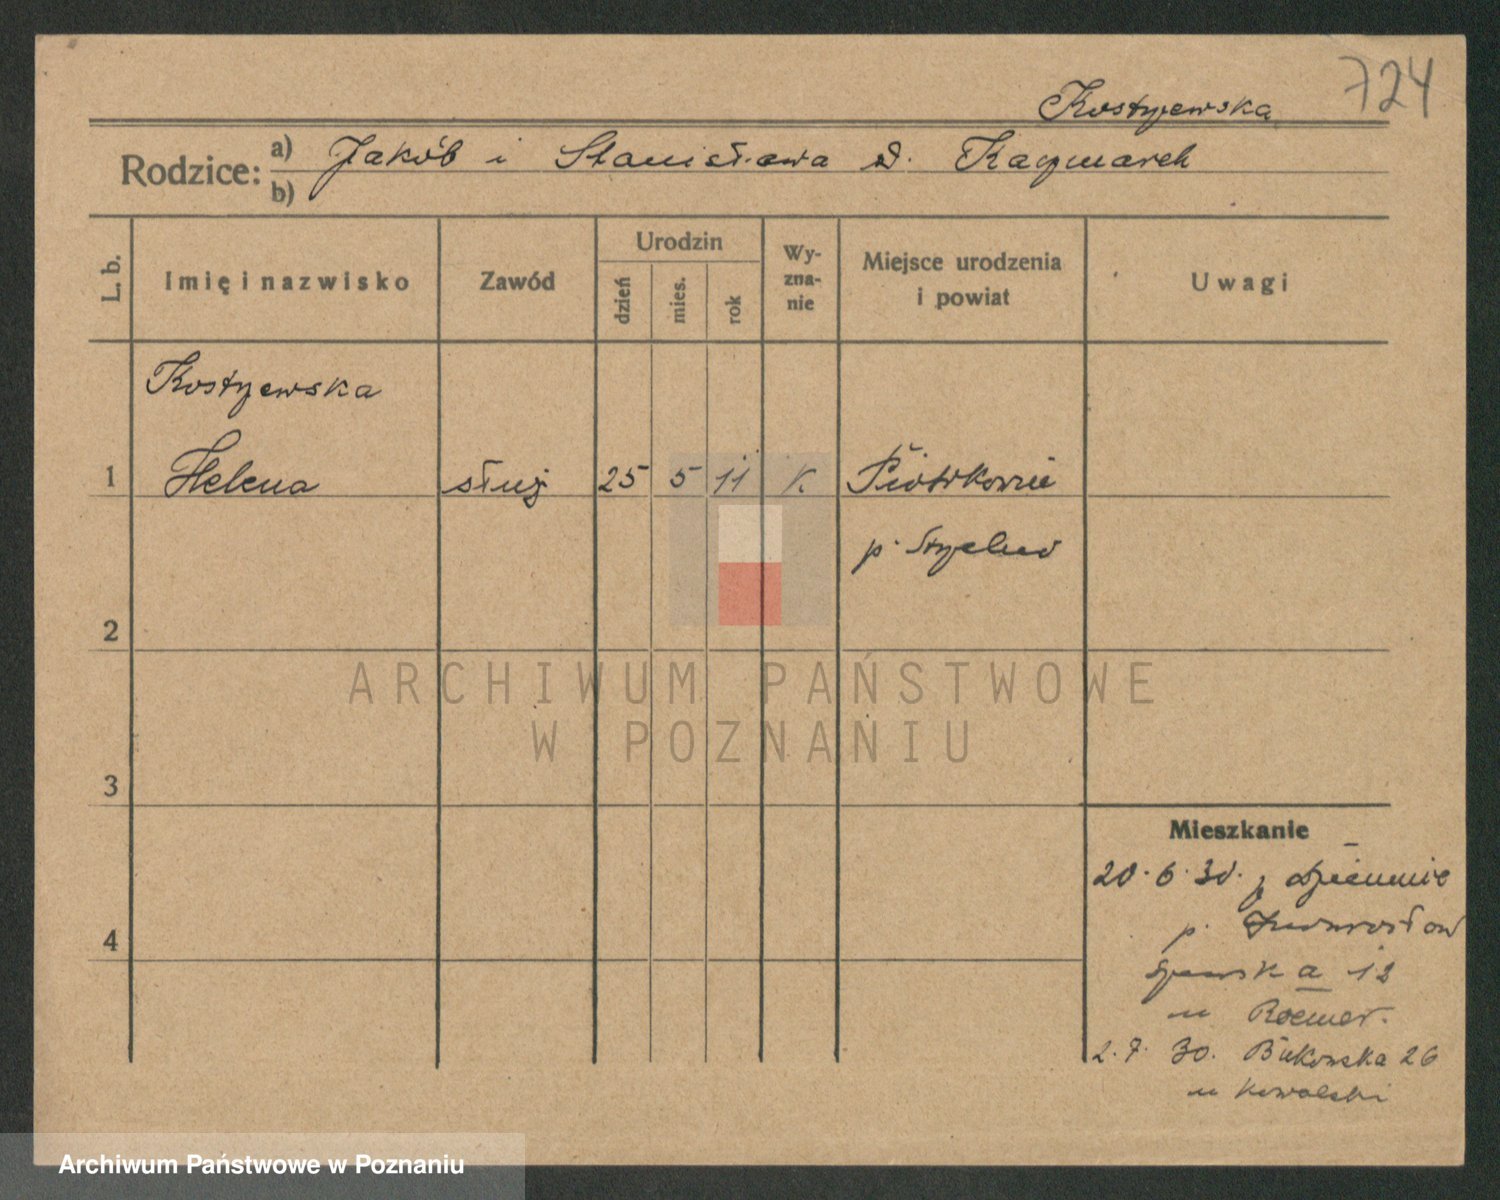 724
Kostrzewska
Rodzice: a) Jakób i Stanisława d. Kaczmarek
b)
L. b. Imię i nazwisko Zawód Urodzin dzień mies. rok Wy-zna-nie Miejsce urodzenia i powiat Uwagi
Kostrzewska
1 Helena służ 25 5 11 K Piotrkowie
p.
2
ARCHIWUM PAŃSTWOWE
W POZNANIU
3
Mieszkanie
20.6.30. z
p.
4
a 12
u
2.7.30. Bukowska 26
u Kowalski
Archiwum Państwowe w Poznaniu